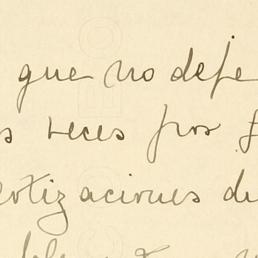 que no deje
s veces por
otizaciones de